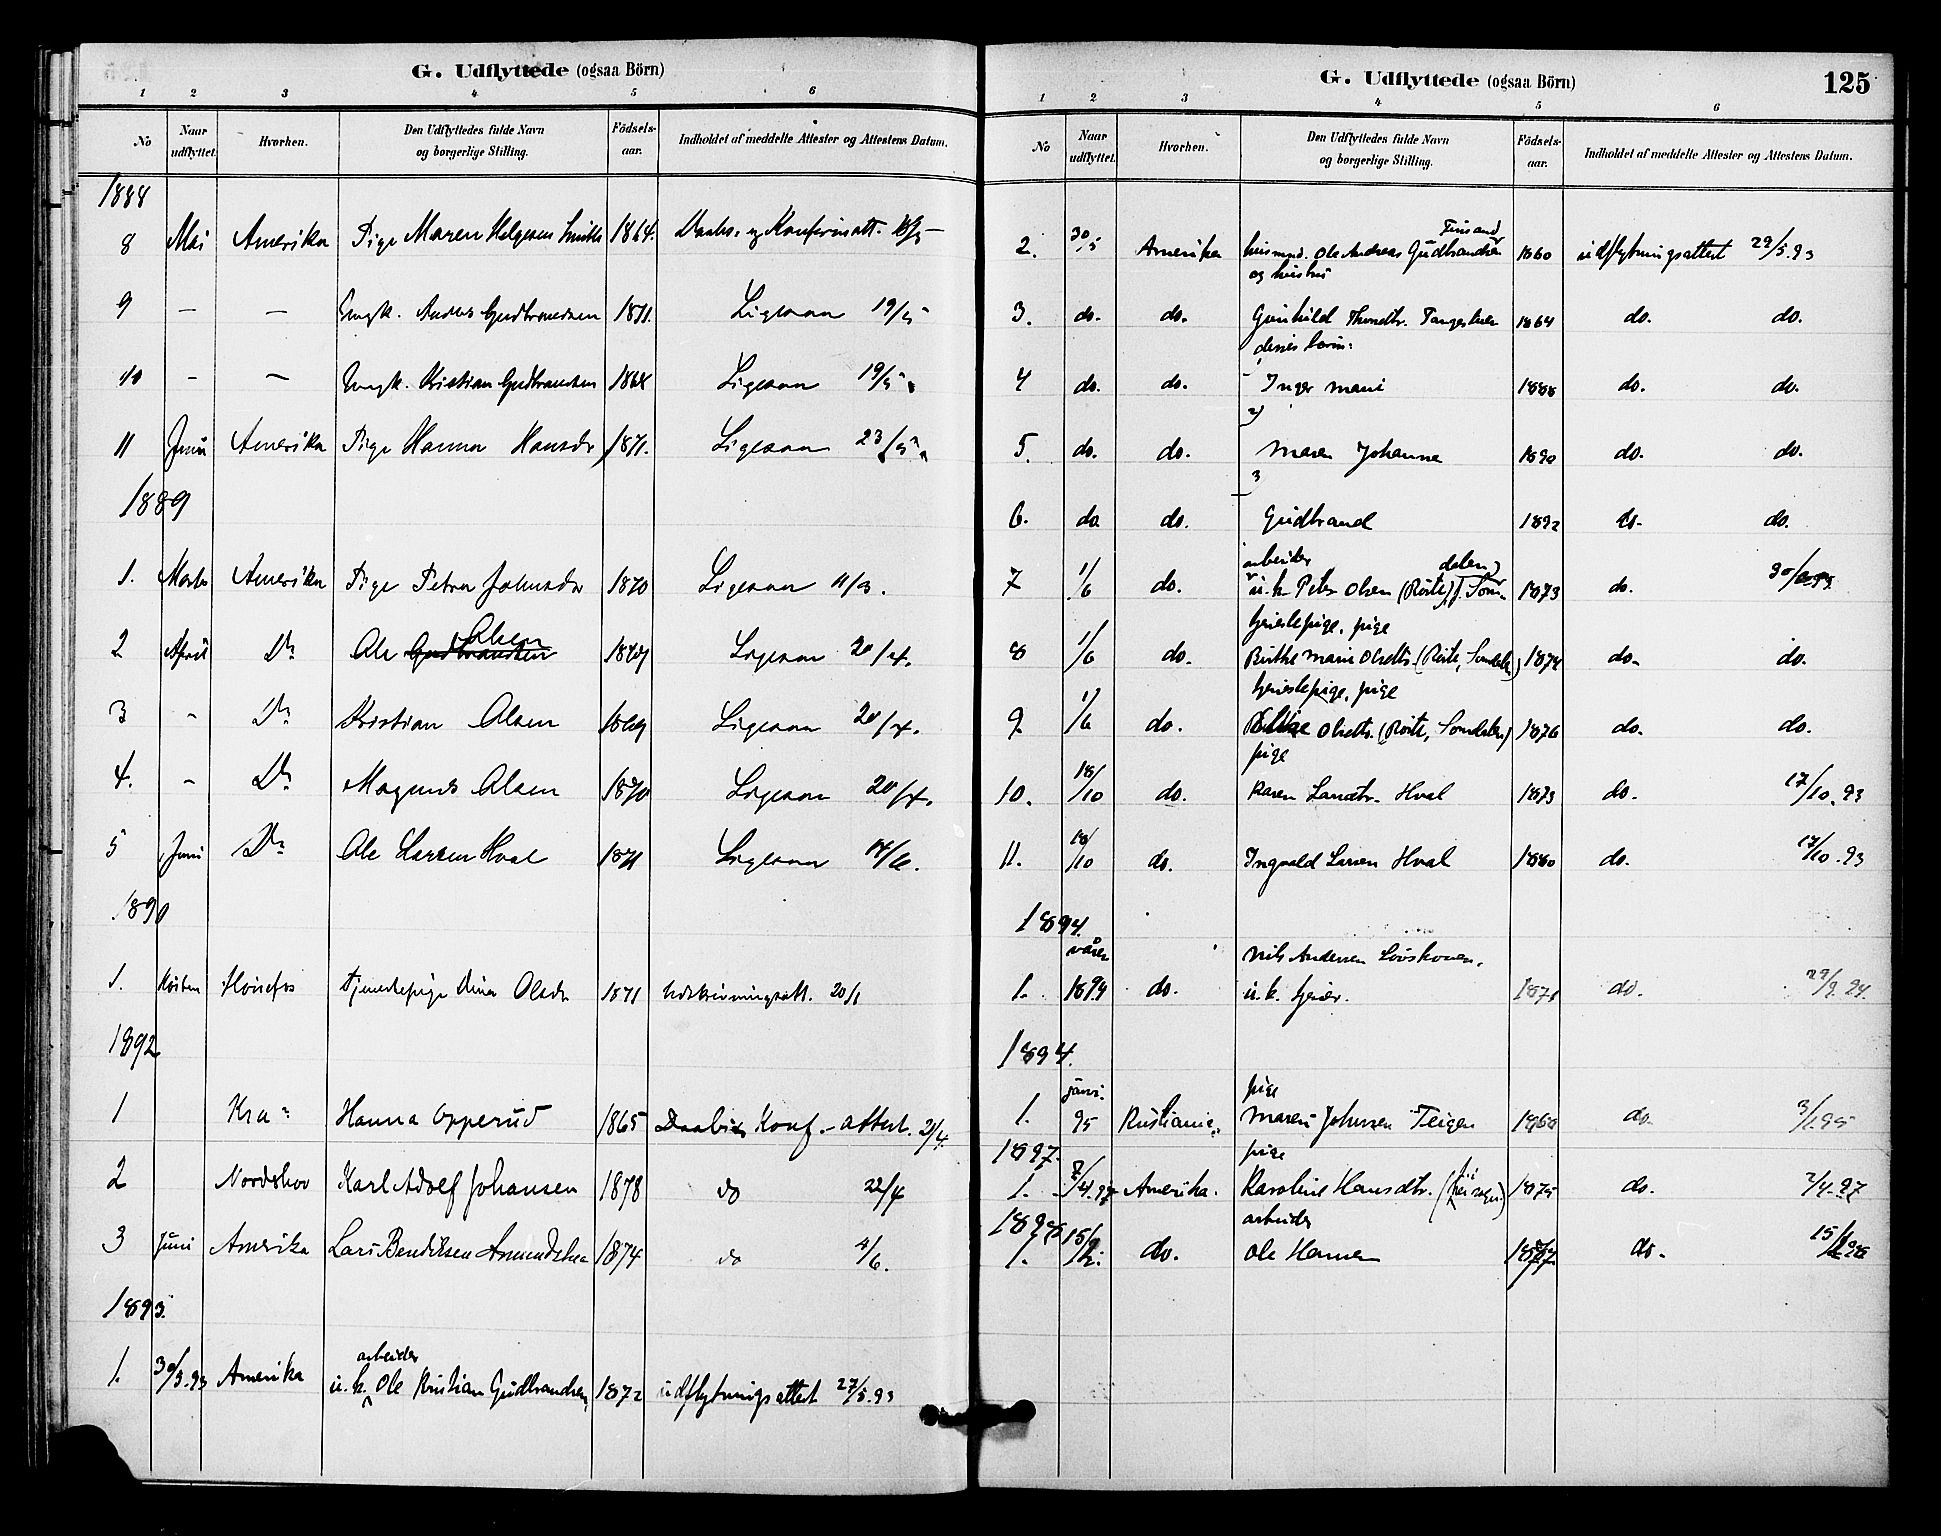 G. Udflyttede (ogsaa Börn)
1 2 3 4 5 6
No Naar udflyttet. Hvorhen. Den Udflyttedes fulde Navn og borgerlige Stilling. Födsels-aar. Indholdet af meddelte Attester og Attestens Datum.
1888
8 Mai Amerika Pige Maren Helgesen 1864. Daabs. og Konfirm att.
9 — — Ungk. Anders Gudbrandsen 1871. Ligesaa 19/5
10 - — Ungk. Kristian Gudbrandsen 1868 Ligesaa 19/5
11 Juni Amerika Pige Hanna Hansdr 1871. Ligesaa 23/5
1889
1. Marts Amerika Pige Petra Johnsdr 1870 Ligesaa 11/3.
2 April Do Ole Gudbrandsen Olsen 1869 Ligesaa 20/4.
3 - Do Kristian Olsen 1869 Ligesaa 20/4.
4. - Do Magnus Olsen 1870 Ligesaa 20/4.
5 Juni Do Ole Larsen Hval 1871 Ligesaa 14/6.
1890
1. Hösten Hönefos Tjenestepige Dina Olsdr 1871 Udskrivningsatt. 20/1
1892
1 Kra Hanna Opperud 1865 Daabs Konf.-attest. 2/4.
2 Nordehov Karl Adolf Johansen 1878 do 22/4
3 Juni Amerika Lars Bendiksen 1874 do 4/6.
1893.
arbeider
1. 30/5.93 Amerika u.k. Ole Kristian Gudbrandsen, 1872 udflytningsattest 27/5.93
G. Udflyttede (ogsaa Börn) 125
1 2 3 4 5 6
No Naar udflyttet. Hvorhen. Den Udflyttedes fulde Navn og borgerlige Stilling. Födsels-aar. Indholdet af meddelte Attester og Attestens Datum.
2. 30/5 Amerika husmnd. Ole Andreas Gudbrandsen 1860 udflytningsattest 29/5.93
og hustru
3. do. do. Gunhild 1864 do. do.
deres børn:
4 do. do. Inger Marie 1888 do. do.
2)
5. do. do. Maren Johanne 1890 do. do.
3
6. do do. Gudbrand 1892 do. do.
arbeider
7 1/6 do. u.k. Peter Olsen 1873 do.
tjenestepige, pige
8 1/6 do. Birthe Marie Olsdtr. 1874 do. do.
tjenestepige, pige
9. 1/6 do. Olsdtr. 1876 do. do.
pige
10. 18/10 do. Karen Larsdtr. Hval 1873 do. 17/10.93
11. 18/10 do. Ingvald Larsen Hval 1880 do. 17/10.93
1894.
våren Nils Andersen Lövskoven,
1. 1894 do. u.k. 1871 do. 29/9.94.
1894.
janr. pige
1. 95 Kristiania Maren Johnsen Teigen do. 3/1.95
1897. pige
1. 7/4.97 Amerika. Karoline Hansdtr. 1875 do. 7/4.97
arbeider
1. do. Ole Hansen do.